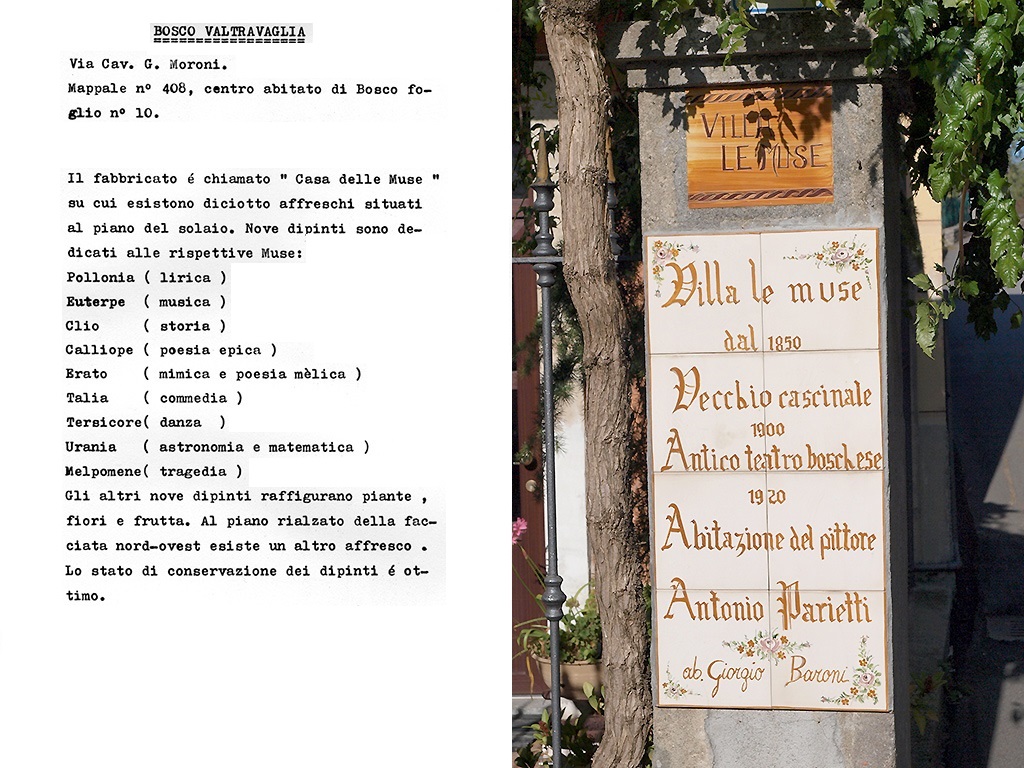 BOSCO VALTRAVAGLIA
Via Cav. G. Moroni.
Mappale nº 408, centro abitato di Bosco fo-
glio nº 10.
Il fabbricato é chiamato " Casa delle Muse "
su cui esistono diciotto affreschi situati
al piano del solaio. Nove dipinti sono de-
dicati alle rispettive Muse:
Pollonia ( lirica )
Euterpe ( musica )
Clio ( storia )
Calliope ( poesia epica )
Erato ( mimica e poesia mèlica )
Talia ( commedia )
Tersicore( danza )
Urania ( astronomia e matematica )
Melpomene( tragedia )
Gli altri nove dipinti raffigurano piante ,
fiori e frutta. Al piano rialzato della fac-
ciata nord-ovest esiste un altro affresco .
Lo stato di conservazione dei dipinti é ot-
timo.
VILLA
LE MUSE
Villa le muse
dal 1850
Vecchio cascinale
1900
Antico teatro boschese
1920
Abitazione del pittore
Antonio Parietti
ab. Giorgio Baroni